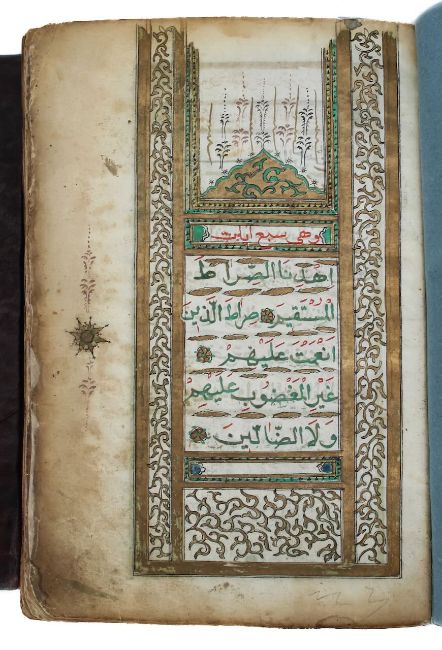 وهي سبع ايات
اهدنا الصراط
المستقيم صراط الذين
انعمت عليهم
غير المغضوب عليهم
ولا الضالين